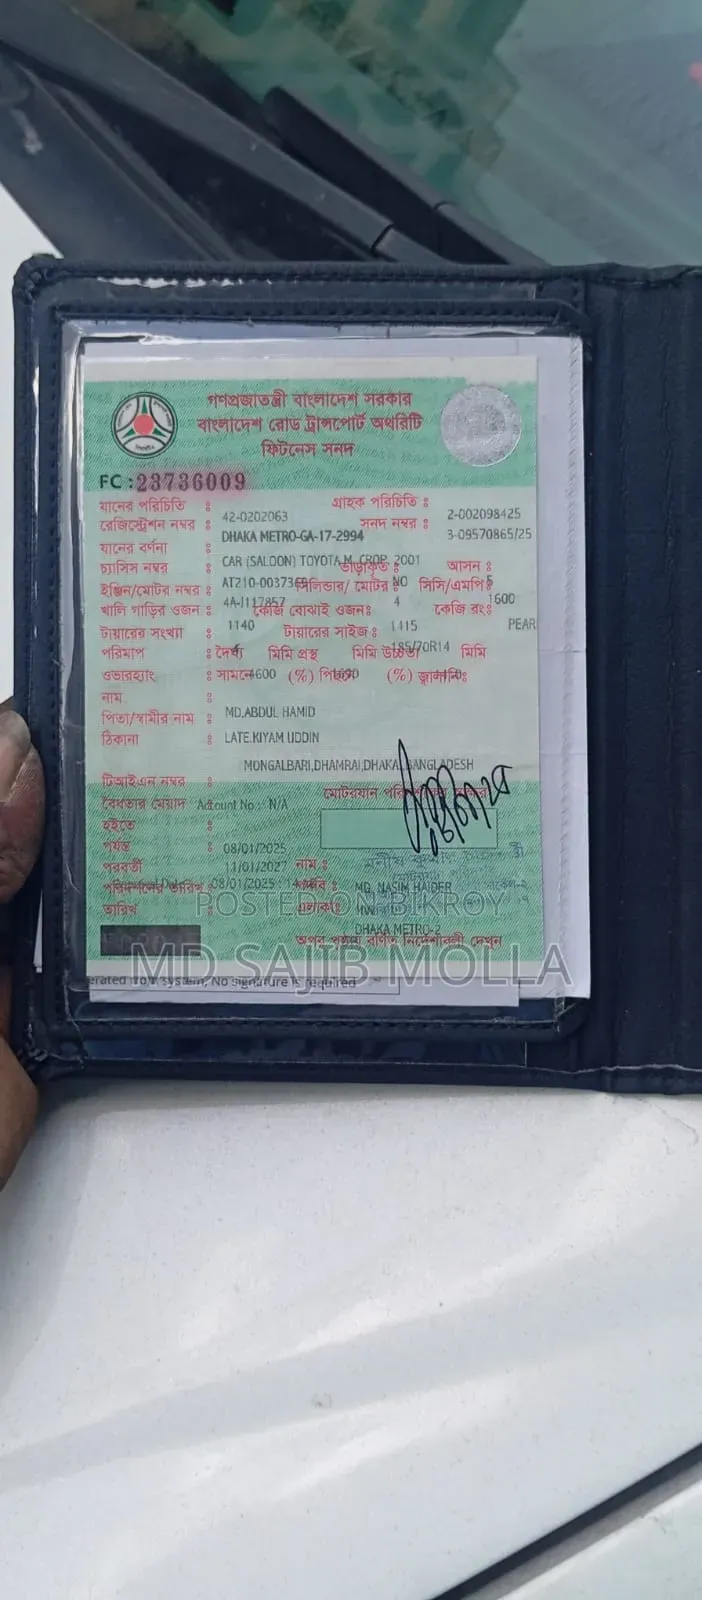 গণপ্রজাতন্ত্রী বাংলাদেশ সরকার
বাংলাদেশ রোড ট্রান্সপোর্ট অথরিটি
ফিটনেস সনদ
FC : 23736009
যানের পরিচিতি : 42-0202063 গ্রাহক পরিচিতি : 2-002098425
রেজিস্ট্রেশন নম্বর : DHAKA METRO-GA-17-2994 সনদ নম্বর : 3-09570865/25
যানের বর্ণনা : CAR (SALOON) TOYOTA M. CROP, 2001
চ্যাসিস নম্বর : AT210-0037369 ভাড়াকৃত : NO আসন : 5
ইঞ্জিন/মোটর নম্বর : 4A-J117857 সিলিন্ডার/ মোটর : 4 সিসি/এমপি : 1600
খালি গাড়ির ওজন : 1140 কেজি বোঝাই ওজন : 1415 কেজি রং : PEAR
টায়ারের সংখ্যা : 4 টায়ারের সাইজ : 185/70R14
পরিমাপ : দৈর্ঘ্য 4600 মিমি প্রস্থ মিমি উচ্চতা মিমি
ওভারহ্যাং : সামনে (%) পিছনে (%) জ্বালানি:
নাম : MD.ABDUL HAMID
পিতা/স্বামীর নাম : LATE.KIYAM UDDIN
ঠিকানা : MONGALBARI,DHAMRAI,DHAKA, BANGLADESH
টিআইএন নম্বর : Account No.: N/A
বৈধতার মেয়াদ
হইতে : 08/01/2025
পর্যন্ত : 11/01/2027
পরবর্তী
পরিদর্শনের তারিখ : 08/01/2025
তারিখ :
নাম : MD. NASIM HAIDER
এলাকা: DHAKA METRO-2
অপর পৃষ্ঠায় বর্ণিত নির্দেশাবলী দেখুন
POSTED ON BIKROY
MD SAJIB MOLLA
erated from system, No signature is required